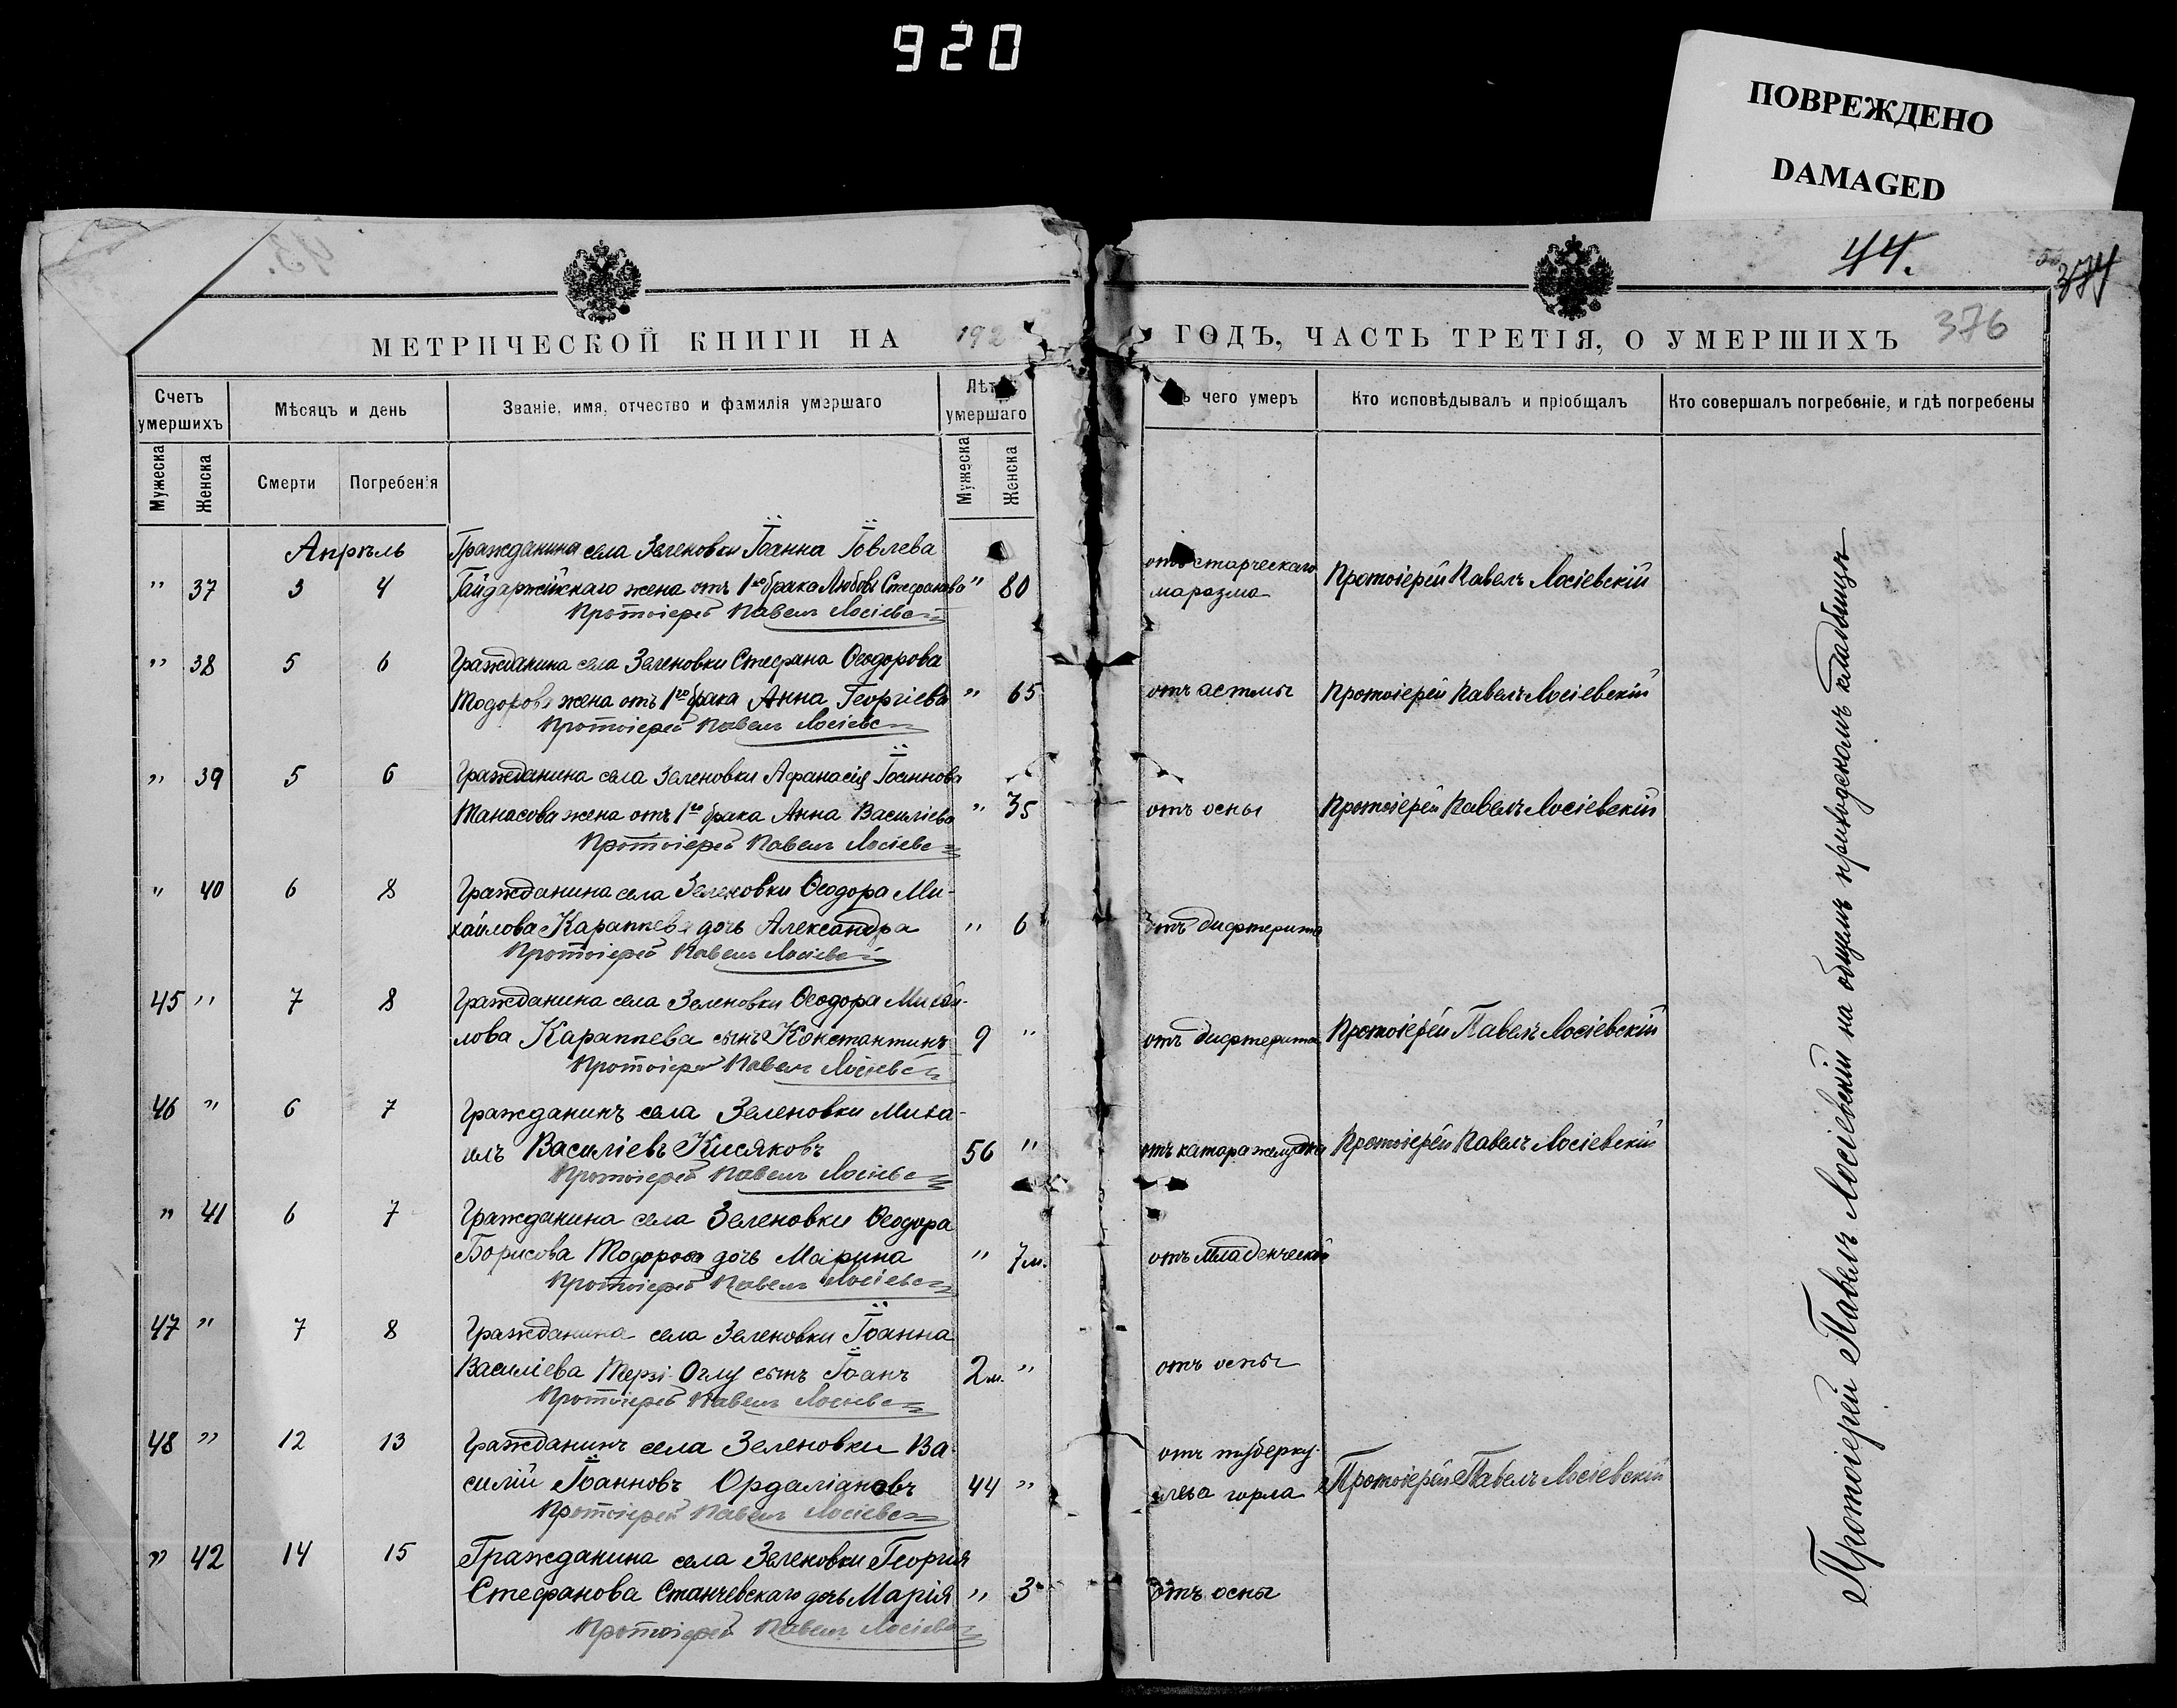 920
ПОВРЕЖДЕНО
DAMAGED
44.
374
376
МЕТРИЧЕСКОЙ КНИГИ НА 192
ГОДЪ, ЧАСТЬ ТРЕТІЯ, О УМЕРШИХЪ
Счетъ умершихъ
Мѣсяцъ и день
Званіе, имя, отчество и фамилія умершаго
Лѣта умершаго
чего умеръ
Кто исповѣдывалъ и пріобщалъ
Кто совершалъ погребеніе, и гдѣ погребены
Мужеска
Женска
Смерти
Погребенія
Мужеска
Женска
Апрѣль
Гражданина села Зеленовки Іоанна Іовлева
" 37 3 4 Гайдаржійскаго жена отъ 1го брака Любовь Стефанова " 80 отъ старческаго маразма Протоіерей Павелъ Лосіевскій
Протоіерей Павелъ Лосіевс
" 38 5 6 Гражданина села Зеленовки Стефана Ѳеодорова
Тодорова жена отъ 1го брака Анна Георгіева " 65 отъ астмы Протоіерей Павелъ Лосіевскій
Протоіерей Павелъ Лосіевс
" 39 5 6 Гражданина села Зеленовки Афанасія Іоаннова
Танасова жена отъ 1го брака Анна Василіева " 35 отъ оспы Протоіерей Павелъ Лосіевскій
Протоіерей Павелъ Лосіевс
" 40 6 8 Гражданина села Зеленовки Ѳеодора Ми-
хайлова Караппева дочь Александра " 6 отъ дифтерита
Протоіерей Павелъ Лосіевс
45 " 7 8 Гражданина села Зеленовки Ѳеодора Михай-
лова Караппева сынъ Константинъ 9 " отъ дифтерита Протоіерей Павелъ Лосіевскій
Протоіерей Павелъ Лосіевс
46 " 6 7 Гражданинъ села Зеленовки Миха-
илъ Василіевъ Кисяковъ 56 " отъ катара желудка Протоіерей Павелъ Лосіевскій
Протоіерей Павелъ Лосіевс
" 41 6 7 Гражданина села Зеленовки Ѳеодора
Борисова Тодорова дочь Марина " 7 м. отъ младенческой
Протоіерей Павелъ Лосіевс
47 " 7 8 Гражданина села Зеленовки Іоанна
Василіева Терзі-Оглу сынъ Іоанъ 2 м. " отъ оспы
Протоіерей Павелъ Лосіевс
48 " 12 13 Гражданинъ села Зеленовки Ва-
силій Іоанновъ Ордаліановъ 44 " отъ туберку-
леза горла Протоіерей Павелъ Лосіевскій
Протоіерей Павелъ Лосіевс
" 42 14 15 Гражданина села Зеленовки Георгія
Стефанова Станчевскаго дочь Марія " 3 отъ оспы
Протоіерей Павелъ Лосіевс
Протоіерей Павелъ Лосіевскій на общемъ приходскомъ кладбищѣ